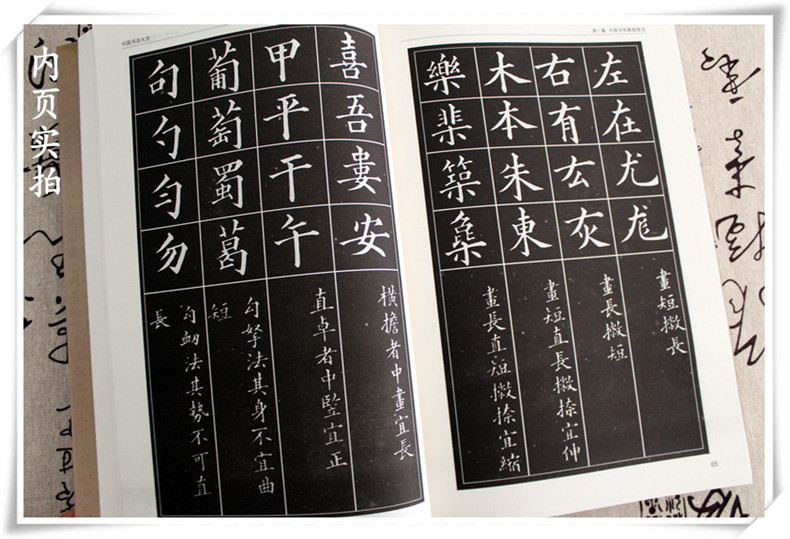 内页实拍
中国书法大字
喜吾婁安
橫擔者中畫宜長
甲平干午
直卓者中竪宜正
葡萄蜀葛
勾拏法其身不宜曲短
句勺勻勿
勾衂法其勢不可直長
第一篇 中国书学基础技法
左在尤尨
畫短撇長
右有厷灰
畫長撇短
木本朱東
畫短直長撇捺宜伸
樂棐築
畫長直短撇捺宜縮
65